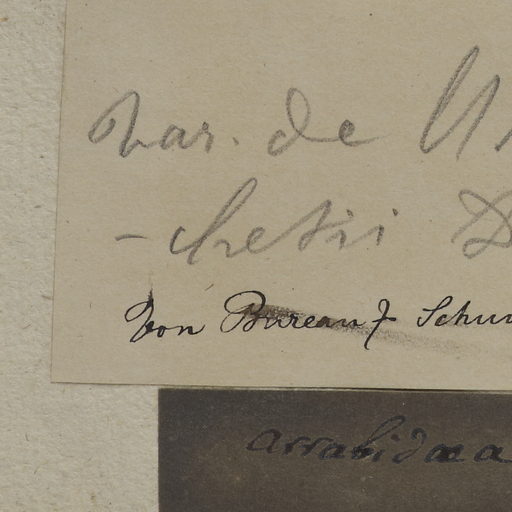 var. de
- chetii D
Von Bureau & Schu
arrabidaea